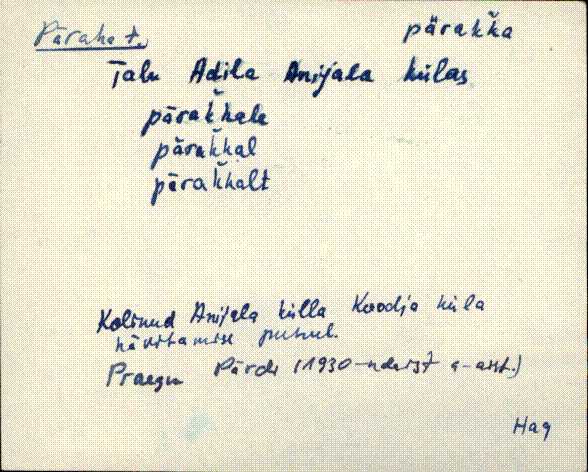 Päraka t. pärakǩa
Talu Adila Anijala külas
pärakǩale
pärakǩal
pärakǩalt
Kolinud Anijala külla Koodja küla
hävitamise puhul.
Praegu Pärdi (1930-ndaist a-aist.)
Hag